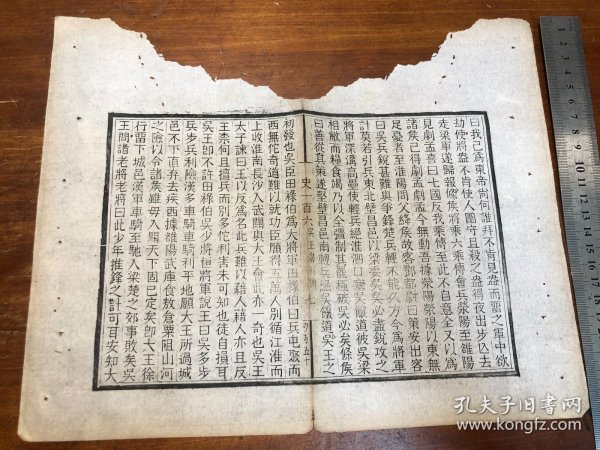 曰我已爲東帝尚何誰拜不肯見盎而留之軍中欲
劫使將盎不肯使人圍守且殺之盎得夜出步亾去
走梁軍遂歸報條矦將乘六乘傳會兵滎陽至雒陽
見劇孟喜曰七國反我乘傳至此不自意全又以爲
諸矦已得劇孟劇孟今無動吾據滎陽滎陽以東無
足憂者至淮陽問父絳矦故客鄧都尉曰策安出客
曰吳兵銳甚難與爭鋒楚兵輕不能久方今爲將軍
計莫若引兵東北壁昌邑以梁委吳吳必盡銳攻之
將軍深溝高壘使輕兵絕淮泗口塞吳饟道彼吳梁
相敝而糧食竭乃以全彊制其罷極破吳必矣條矦
曰善從其策遂堅壁昌邑南輕兵絕吳饟道吳王之
史一百六
七
初發也吳臣田祿伯爲大將軍田祿伯曰兵屯聚而
西無佗奇道難以就功臣願得五萬人別循江淮而
上收淮南長沙入武關與大王會此亦一奇也吳王
太子諫曰王以反爲名此兵難以藉人藉人亦且反
王柰何且擅兵而別多佗利害未可知也徒自損耳
吳王卽不許田祿伯吳少將桓將軍說王曰吳多步
兵步兵利險漢多車騎車騎利平地願大王所過城
邑不下直弃去疾西據雒陽武庫食敖倉粟阻山河
之險以令諸矦雖毋入關天下固已定矣卽大王徐
行畱下城邑漢軍車騎至馳入梁楚之郊事敗矣吳
王問諸老將老將曰此少年推鋒之計可耳安知大
孔夫子旧书网
www.kongfz.com